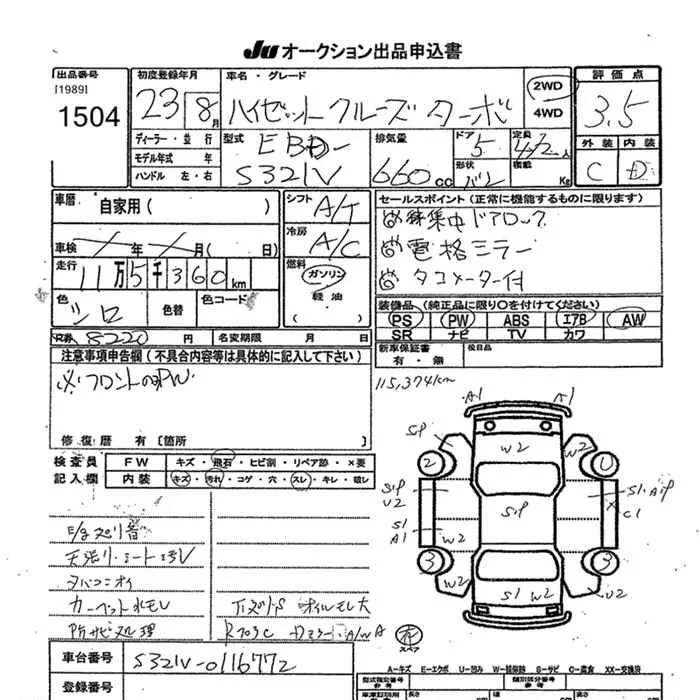 JU オークション出品申込書
出品番号
[1989]
1504
初度登録年月
23 8月
車名・グレード
ハイゼットクルーズターボ
2WD
4WD
評価点
3.5
ディーラー・並行
モデル年式 年
ハンドル 左・右
型式
EBD-
S321V
排気量
660cc
ドア
5
形状
バン
定員
4/2人
積載
Kg
外装 内装
C D
車歴
自家用( )
車検 年 月( 日)
走行
11万5千360km
色
シロ
色替
色コード
シフト
A/T
冷房
A/C
燃料
ガソリン
軽油
( )
セールスポイント(正常に機能するものに限ります)
集中ドアロック
電格ミラー
タコメーター付
装備品(純正品に限り○を付けてください)
PS PW ABS エアB AW
SR ナビ TV カワ
R券 8220円
名変期限 月 日
新車保証書
有・無
後日品
注意事項申告欄(不具合内容等は具体的に記入して下さい)
※フロントのみPW
修復歴 有〔箇所 〕
115,374km
検査員
記入欄
FW キズ・飛石・ヒビ割・リペア跡・×要
内装 キズ・汚れ・コゲ・穴・スレ・キレ・破レ
E/gヌバリ音
天張り・シート
タバコニオイ
カーペット
防サビ処理
オイルモレ大
A1 A1
SP W2 W2
2
SP
U2
SP
S1 A1P
C1
S1
A1
W2
3 3
W2 W2 U2
S1 W2
有
スペア
A=キズ E=エクボ U=凹み W=板跡 S=サビ C=腐食 XX=交換済
車台番号
S321V-0116772
登録番号
型式指定番号
参考
類別区分番号
参考
長さ
幅
高さ